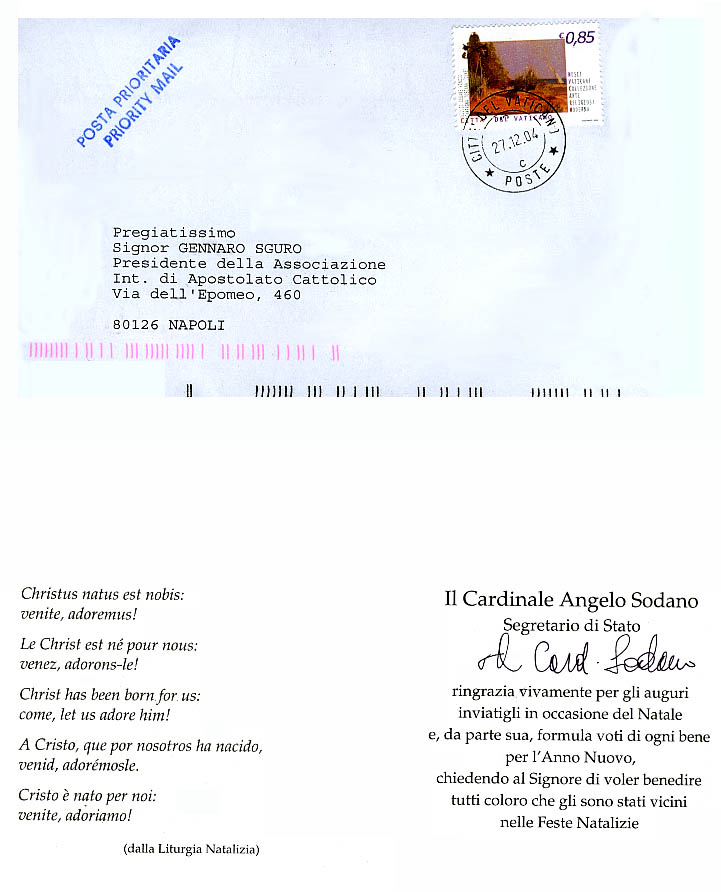 POSTA PRIORITARIA
PRIORITY MAIL
€0,85
MUSEI
VATICANI
COLLEZIONE
ARTE
RELIGIOSA
MODERNA
CITTÀ DEL VATICANO
CITTÀ DEL VATICANO
27.12.04
C
POSTE
Pregiatissimo
Signor GENNARO SGURO
Presidente della Associazione
Int. di Apostolato Cattolico
Via dell'Epomeo, 460
80126 NAPOLI
Christus natus est nobis:
venite, adoremus!
Le Christ est né pour nous:
venez, adorons-le!
Christ has been born for us:
come, let us adore him!
A Cristo, que por nosotros ha nacido,
venid, adorémosle.
Cristo è nato per noi:
venite, adoriamo!
(dalla Liturgia Natalizia)
Il Cardinale Angelo Sodano
Segretario di Stato
Card. Sodano
ringrazia vivamente per gli auguri
inviatigli in occasione del Natale
e, da parte sua, formula voti di ogni bene
per l'Anno Nuovo,
chiedendo al Signore di voler benedire
tutti coloro che gli sono stati vicini
nelle Feste Natalizie